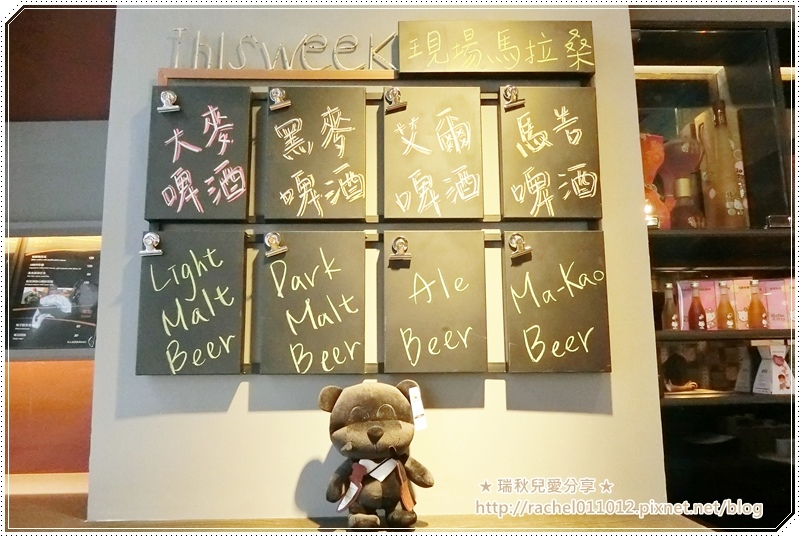 This week
現場馬拉桑
大麥
啤酒
黑麥
啤酒
艾爾
啤酒
馬告
啤酒
Light
Malt
Beer
Dark
Malt
Beer
Ale
Beer
Ma-Kao
Beer
★ 瑞秋兒愛分享 ★
http://rachel011012.pixnet.net/blog